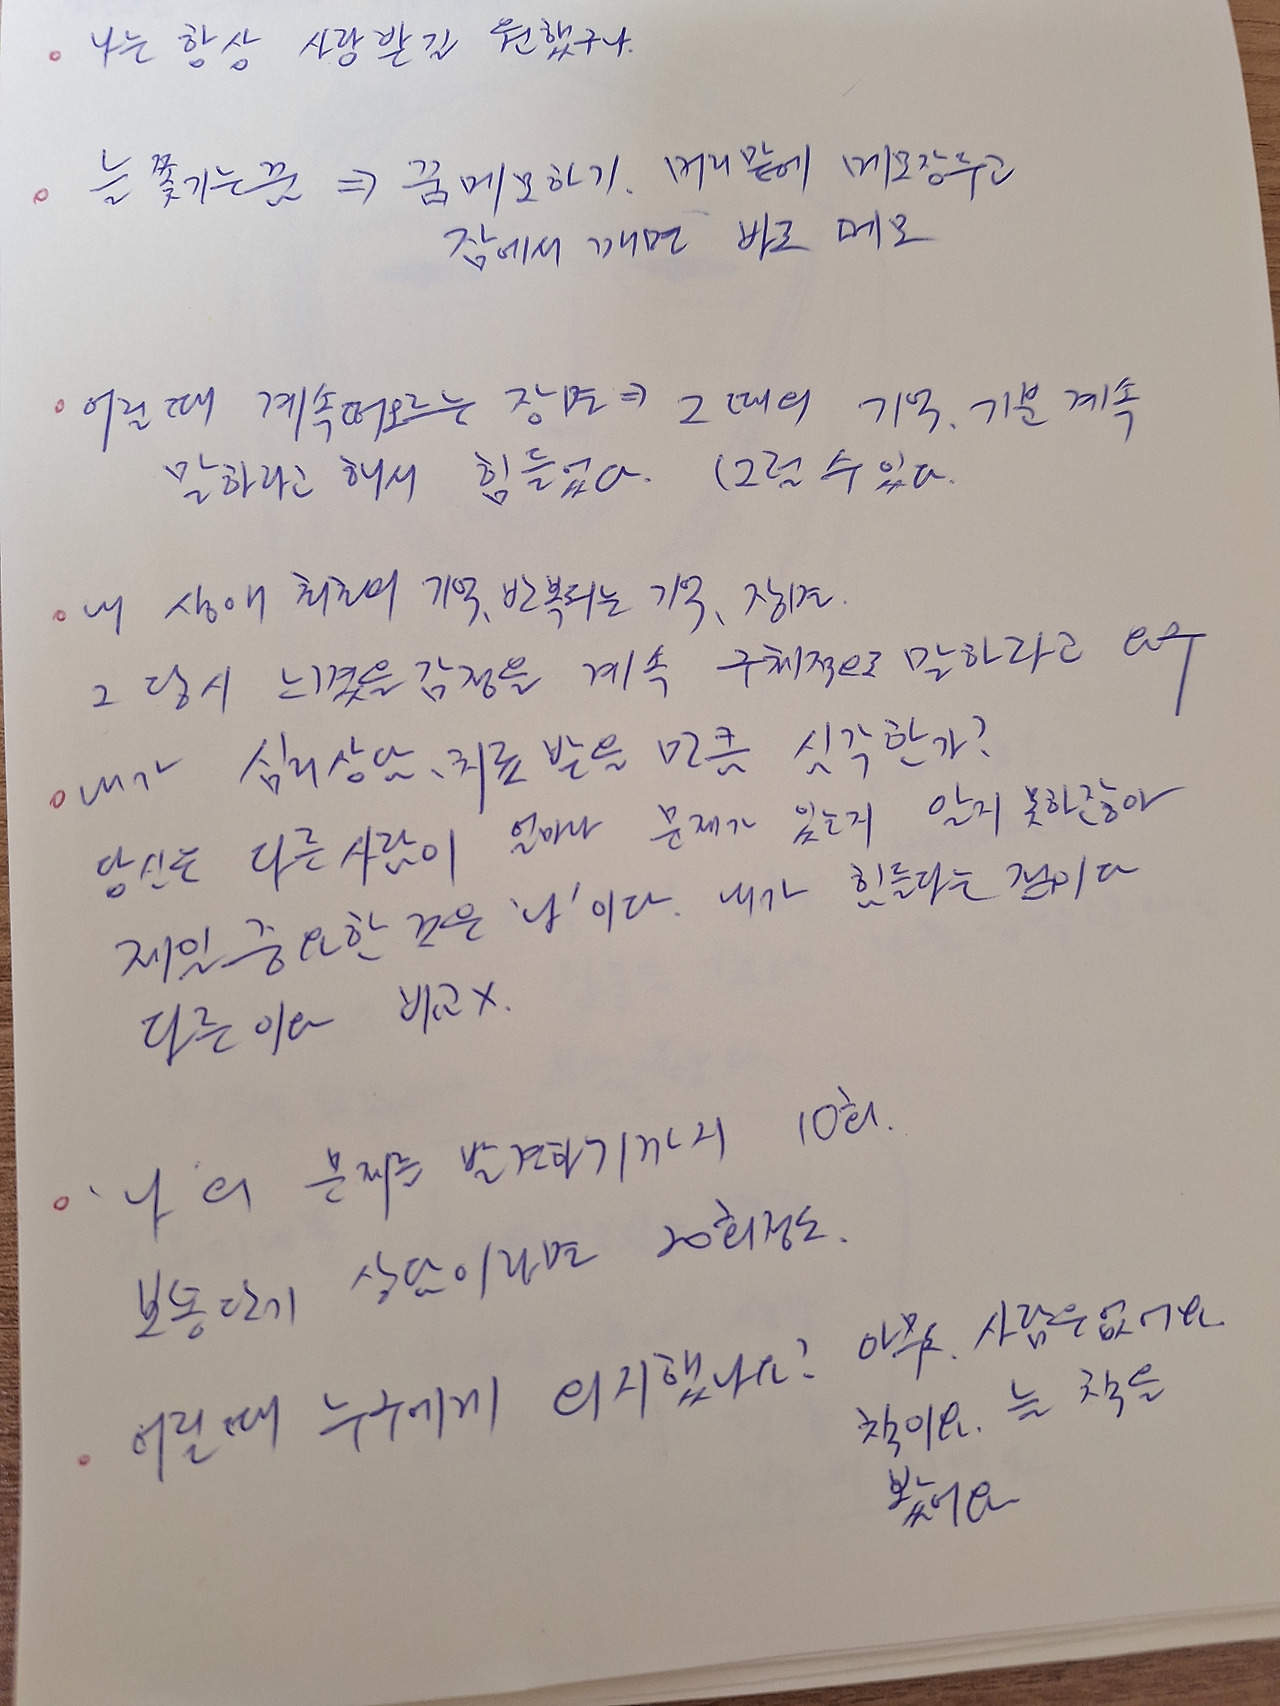 • 나는 항상 사랑받길 원했구나.
• 늘 쫓기는 꿈 ⇒ 꿈메모하기. 머리맡에 메모장두고
잠에서 깨면 바로 메모
• 어릴때 계속떠오르는 장면⇒ 그때의 기억、기분 계속
말하라고 해서 힘들었다. (그럴 수 있다.
• 내 생애 최초의 기억、반복되는 기억、장면.
그 당시 느꼈을 감정을 계속 구체적으로 말하라고 요구
• 내가 심리상담、치료 받을 만큼 심각한가?
당신은 다른사람이 얼마나 문제가 있는지 알지 못하잖아
제일 중요한 것은 '나'이다. 내가 힘들다는 점이다
다른이와 비교X.
• '나'의 문제를 발견하기까지 10회.
보통단기 상담이라면 20회정도.
• 어릴때 누구에게 의지했나요? 아무도. 사람은없어요
책이요. 늘 책을
봤어요